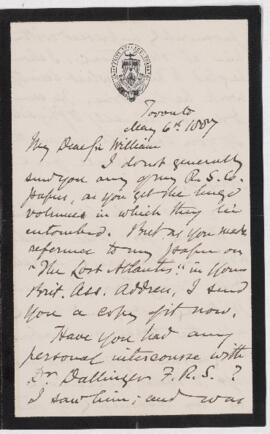 Toronto
May 6th 1887
My Dear Sir William
I don't generally
send you any of my R.S.C.
papers, as you get the huge
volumes in which they lie
entombed. But as you make
reference to my paper on
"The Lost Atlantis" in your
Brit. Ass. Address, I send
you a copy of it now.
Have you had any
personal intercourse with
Dr Dallinger F.R.S.?
I saw him; and was